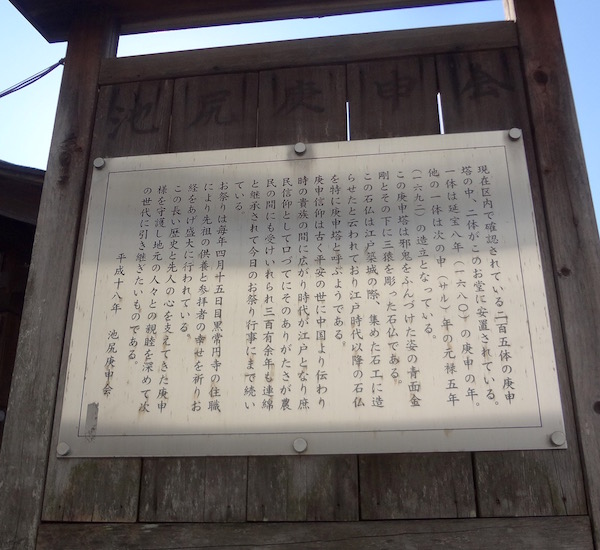 池尻庚申会
現在区内で確認されている二百五体の庚申
塔の中、二体がこのお堂に安置されている。
一体は延宝八年(一六八〇)の庚申の年。
他の一体は次の申(サル)年の元禄五年
(一六九二)の造立となっている。
この庚申塔は邪鬼をふんづけた姿の青面金
剛とその下に三猿を彫った石仏である。
この石仏は江戸築城の際、集めた石工に造
らせたと云われており江戸時代以降の石仏
を特に庚申塔と呼ぶようである。
庚申信仰は古く平安の世に中国より伝わり
時の貴族の間に広がり時代が江戸となり庶
民信仰として口づてにそのありがたさが農
民の間にも受けいれられ三百有余年も連綿
と継承されて今日のお祭り行事にまで続い
ている。
お祭りは毎年四月十五日目黒常円寺の住職
により先祖の供養と参拝者の幸せを祈りお
経をあげ盛大に行われている。
この長い歴史と先人の心を支えてきた庚申
様を守護し地元の人々との親睦を深めて次
の世代に引き継ぎたいものである。
平成十八年 池尻庚申会